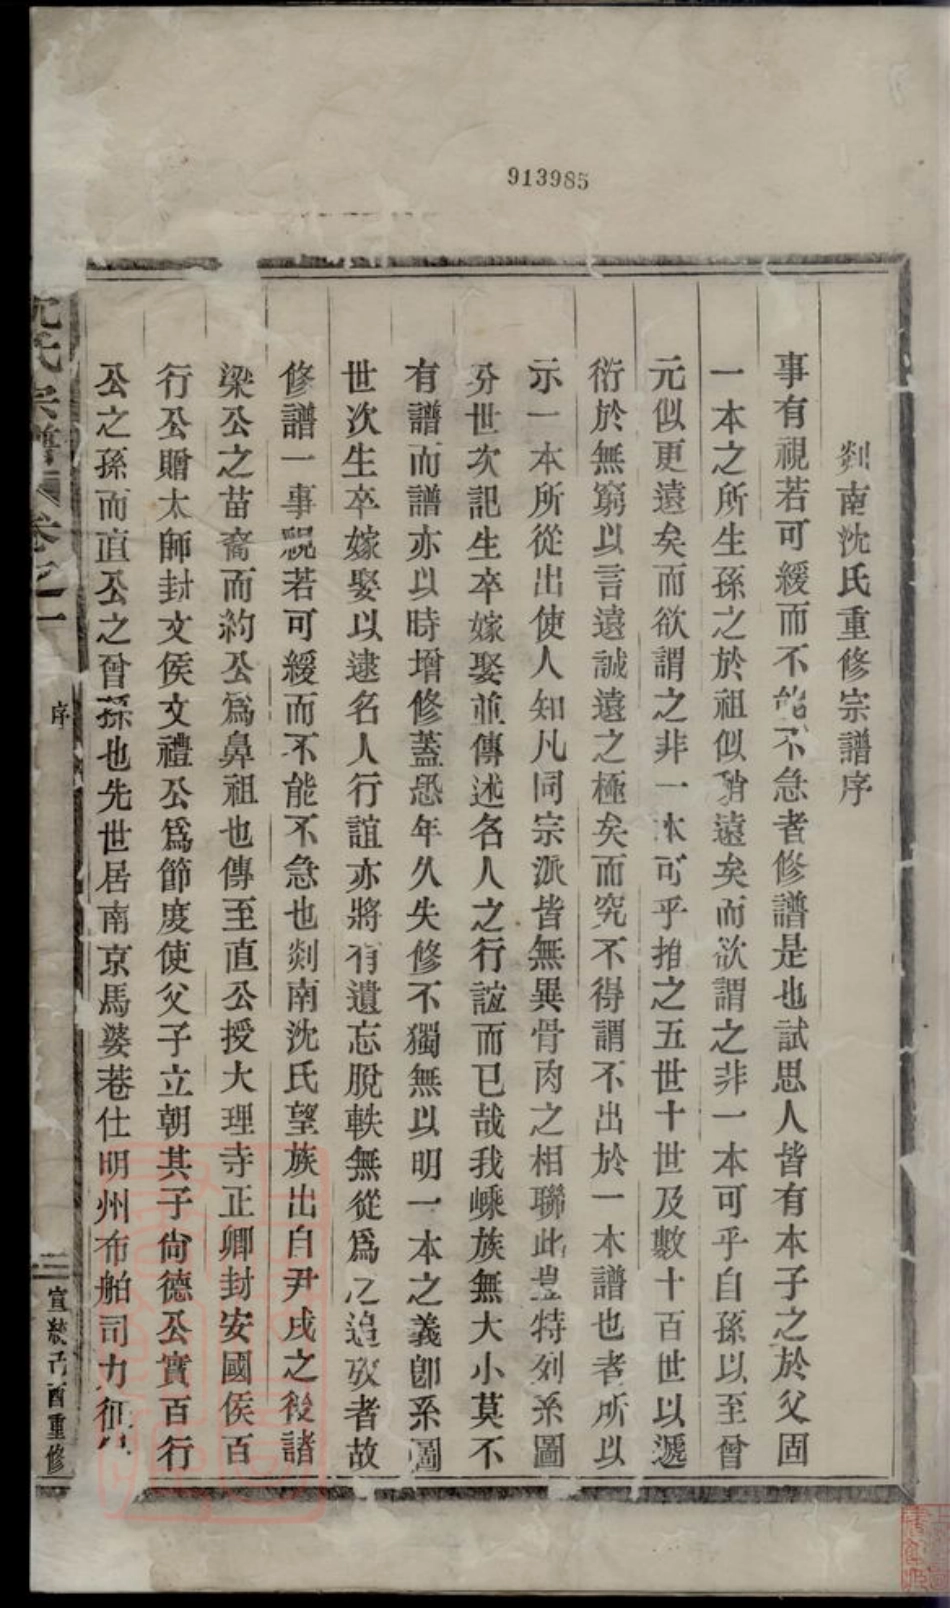 913985
剡南沈氏重修宗譜序
事有視若可緩而不能不急者修譜是也試思人皆有本子之於父固
一本之所生孫之於祖似稍遠矣而欲謂之非一本可乎自孫以至曾
元似更遠矣而欲謂之非一本可乎推之五世十世及數十百世以遞
衍於無窮以言遠誠遠之極矣而究不得謂不出於一本譜也者所以
示一本所從出使人知凡同宗派皆無異骨肉之相聯此豈特列系圖
分世次記生卒嫁娶並傳述各人之行誼而已哉我嵊族無大小莫不
有譜而譜亦以時增修蓋恐年久失修不獨無以明一本之義卽系圖
世次生卒嫁娶以逮名人行誼亦將有遺忘脫軼無從爲之追攷者故
修譜一事視若可緩而不能不急也剡南沈氏望族出自尹戌之後諸
梁公之苗裔而約公爲鼻祖也傳至直公授大理寺正卿封安國侯百
行公贈太師封文侯文禮公爲節度使父子立朝其子尙德公實百行
公之孫而直公之曾孫也先世居南京馬婆巷仕明州布舶司力征
沈氏宗譜 卷之一
序
二
宣統己酉重修